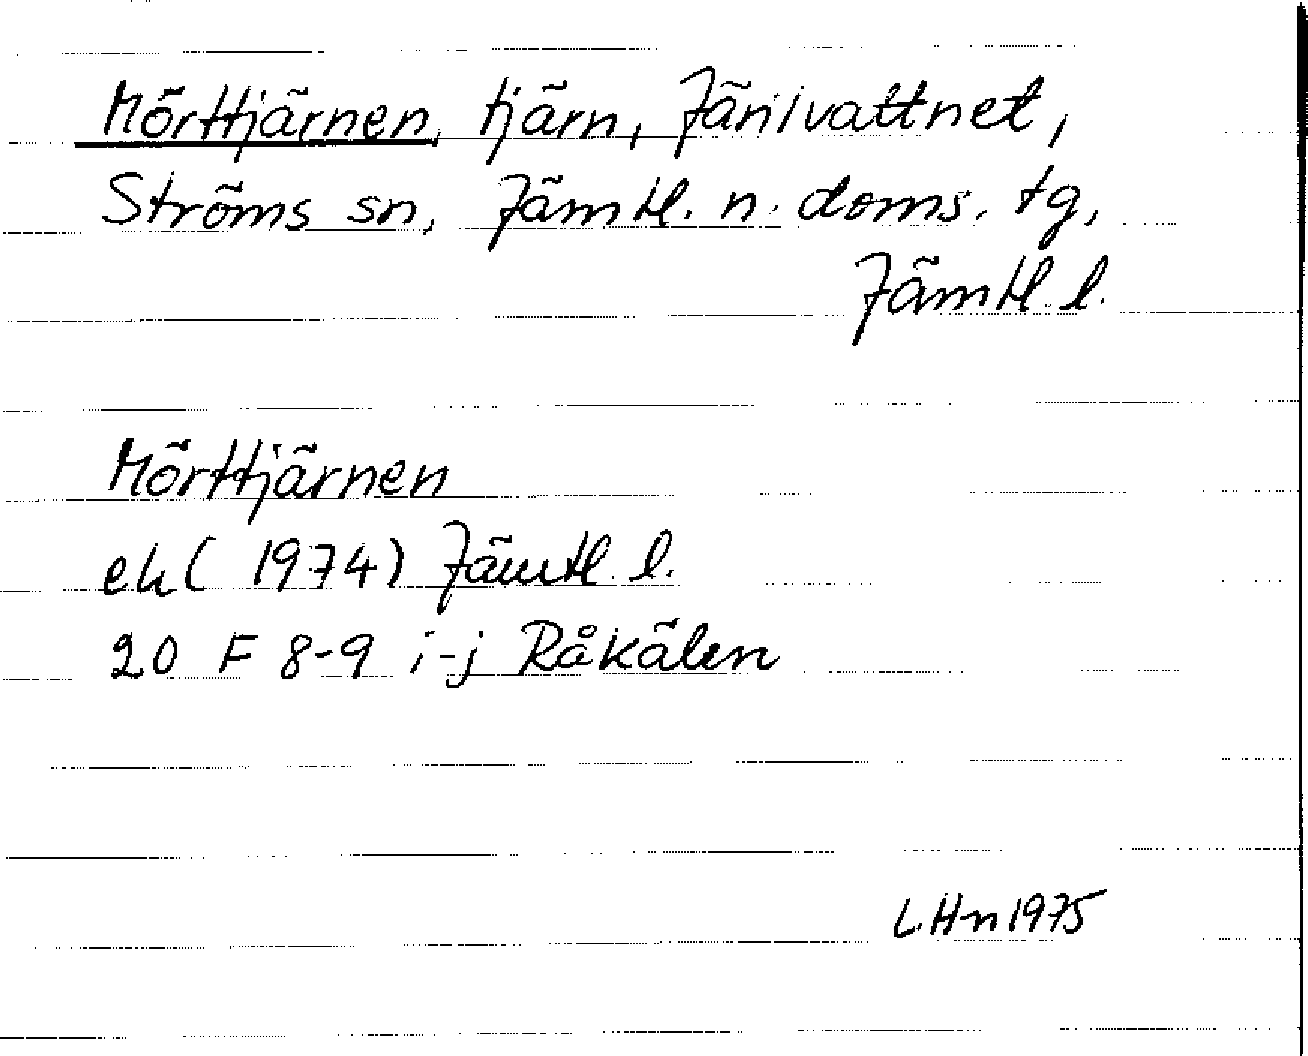 Mörttjärnen, tjärn, Järilvattnet,
Ströms sn, Jämtl. n. doms. tg,
Jämtl. l.
Mörttjärnen
ek (1974) Jämtl. l.
20 F 8-9 i-j Råkälen
L.Hn 1975